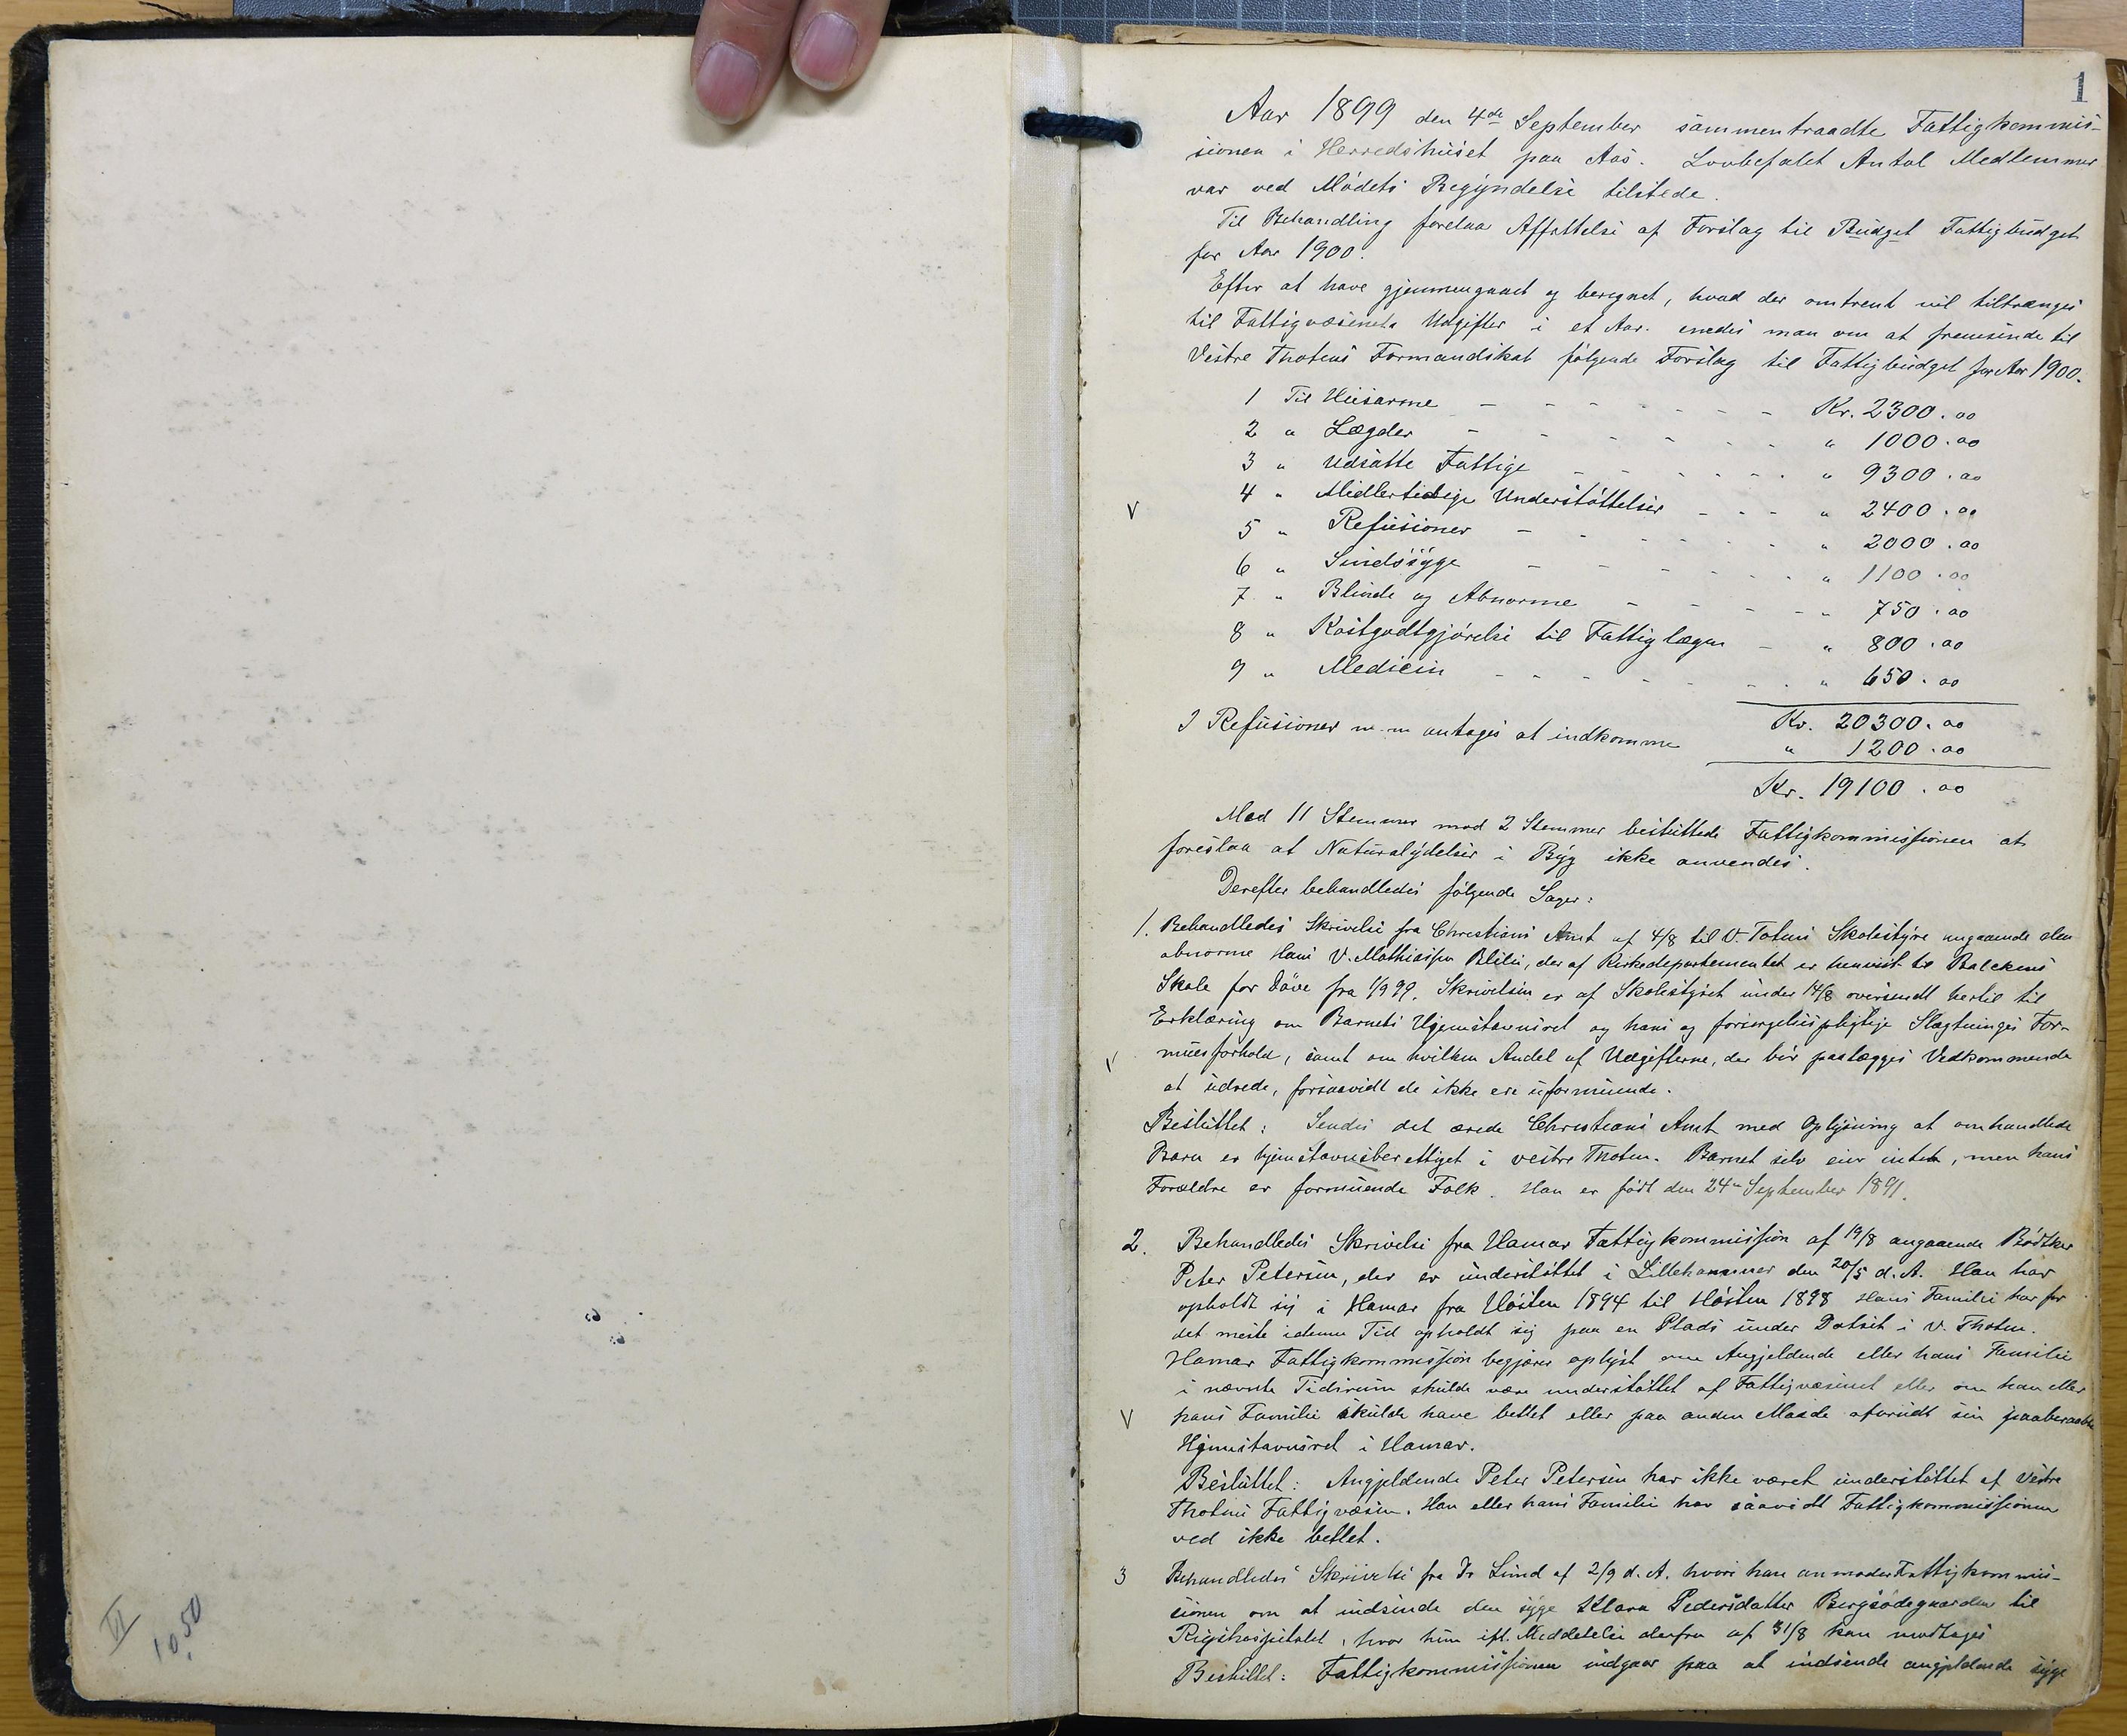 VI
10.50
1
Aar 1899 den 4de September sammentraadte Fattigkommis-
sionen i Herredshuset paa Aas. Lovbefalet Antal Medlemmer
var ved Mødets Begyndelse tilstede.
Til Behandling forelaa Affattelse af Forslag til Budget Fattigbudget
for Aar 1900.
Efter at have gjennemgaaet og beregnet, hvad der omtrent vil tiltrænges
til Fattigvæsenets Udgifter i et Aar. enedes man om at fremsende til
Vestre Thotens Formandskab følgende Forslag til Fattigbudget for Aar 1900.
1 Til Husarme - - - - - - - Kr. 2300.00
2 " Lægder - - - - - " 1000.00
3 " Udsatte Fattige - - - - - " 9300.00
4 " Midlertidige Understøttelser - - - " 2400.00
V
5 " Refusioner - - - - - - " 2000.00
6 " Sindssyge - - - - - - " 1100.00
7 " Blinde og Abnorme - - - - " 750.00
8 " Kostgodtgjørelse til Fattiglægen - " 800.00
9 " Medicin - - - - - - - " 650.00
Kr. 20300.00
I Refusioner m.m antages at indkomme " 1200.00
Kr. 19100.00
Med 11 Stemmer mod 2 Stemmer besluttede Fattigkommissionen at
foreslaa at Naturalydelser i Byg ikke anvendes.
Derefter behandledes følgende Sager:
1. Behandledes Skrivelse fra Christians Amt af 4/8 til V. Totens Skolestyre angaaende den
abnorme Hans V. Mathiassen Blili, der af Kirkedepartementet er henvist til Balchens
Skole for Døve fra 1/9 99. Skrivelsen er af Skolestyret under 14/8 oversendt hertil til
Erklæring om Barnets Hjemstavnsret og hans og forsørgelsespligtige Slægtninges For-
muesforhold, samt om hvilken Andel af Udgifterne, der bør paalægges Vedkommende
V
at udrede, forsaavidt de ikke ere uformuende.
Besluttet: Sendes det ærede Christians Amt med Oplysning at omhandlede
Barn er hjemstavnsberettiget i vestre Thoten. Barnet selv eier intet, men hans
Forældre er formuende Folk. Han er født den 24de September 1891.
2. Behandledes Skrivelse fra Hamar Fattigkommission af 19/8 angaaende Bødtker
Peter Petersen, der er understøttet i Lillehammer den 20/5 d.A. Han har
opholdt sig i Hamar fra Høsten 1894 til Høsten 1898 Hans Familie har for
det meste i denne Tid opholdt sig paa en Plads under Dotset i V. Thoten.
Hamar Fattigkommission begjærer oplyst om Angjeldende eller hans Familie
i nævnte Tidsrum skulde være understøttet af Fattigvæsenet eller om han eller
V
hans Familie skulde have bettet eller paa anden Maade afbrudt sin paaberaabte
Hjemstavnsret i Hamar.
Besluttet: Angjeldende Peter Petersen har ikke været understøttet af Vestre
Thotens Fattigvæsen. Han eller hans Familie har saavidt Fattigkommissionen
ved ikke betlet.
3 Behandledes Skrivelse fra Dr Lund af 2/9 d.A. hvori han anmoder Fattigkommis-
sionen om at indsende den syge Klara Pedersdatter Bergsødegaarden til
Rigshospitalet, hvor hun ifl. Meddelelse derfra af 31/8 kan modtages
Besluttet: Fattigkommissionen indgaar paa at indsende angjeldende syge